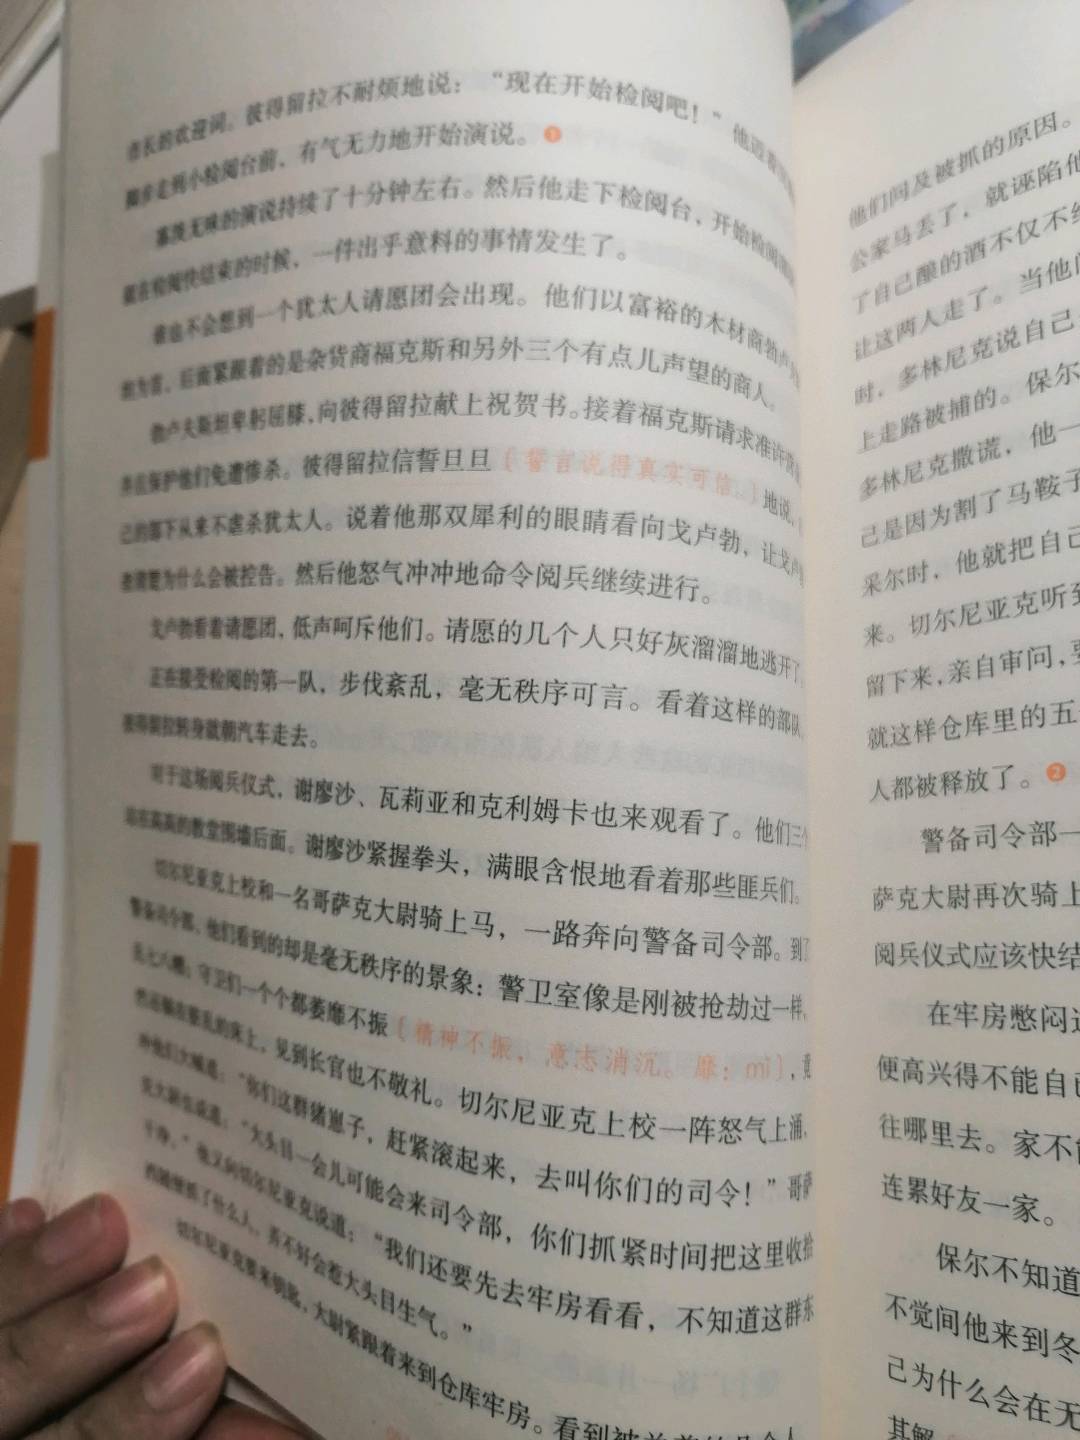 市长的欢迎词。彼得留拉不耐烦地说：“现在开始检阅吧！”他迈着
脚步走到小检阅台前，有气无力地开始演说。❶
寡淡无味的演说持续了十分钟左右。然后他走下检阅台，开始检阅
就在检阅快结束的时候，一件出乎意料的事情发生了。
谁也不会想到一个犹太人请愿团会出现。他们以富裕的木材商勃卢夫
为首，后面紧跟着的是杂货商福克斯和另外三个有点儿声望的商人。
勃卢夫斯坦卑躬屈膝，向彼得留拉献上祝贺书。接着福克斯请求准许
并且保护他们免遭惨杀。彼得留拉信誓旦旦［誓言说得真实可信。］地说，
己的部下从来不虐杀犹太人。说着他那双犀利的眼睛看向戈卢勃，让戈卢
为什么会被控告。然后他怒气冲冲地命令阅兵继续进行。
戈卢勃看着请愿团，低声呵斥他们。请愿的几个人只好灰溜溜地逃开了。
正在接受检阅的第一队，步伐紊乱，毫无秩序可言。看着这样的部队，
彼得留拉转身就朝汽车走去。
对于这场阅兵仪式，谢廖沙、瓦莉亚和克利姆卡也来观看了。他们三个
站在高高的教堂围墙后面。谢廖沙紧握拳头，满眼含恨地看着那些匪兵们。
切尔尼亚克上校和一名哥萨克大尉骑上马，一路奔向警备司令部。到了
警备司令部，他们看到的却是毫无秩序的景象：警卫室像是刚被抢劫过一样，
乱七八糟；守卫们一个个都萎靡不振［精神不振，意志消沉。靡：mǐ］，竟
然还躺在脏乱的床上，见到长官也不敬礼。切尔尼亚克上校一阵怒气上涌，
冲他们大喊道：“你们这群猪崽子，赶紧滚起来，去叫你们的司令！”哥萨
克大尉也说道：“大头目一会儿可能会来司令部，你们抓紧时间把这里收拾
干净。”他又向切尔尼亚克说道：“我们还要先去牢房看看，不知道这群东
西随便抓了什么人，弄不好会惹大头目生气。”
切尔尼亚克要来钥匙，大尉紧跟着来到仓库牢房。看到被
他们问及被抓的原因。
公家马丢了，就诬陷他
了自己酿的酒不仅不给
让这两人走了。当他问
时，多林尼克说自己
上走路被捕的。保尔
多林尼克撒谎，他一
己是因为割了马鞍子
采尔时，他就把自己
来。切尔尼亚克听到
留下来，亲自审问，要
就这样仓库里的五
人都被释放了。❷
警备司令部一
萨克大尉再次骑上
阅兵仪式应该快结
在牢房憋闷
便高兴得不能自已
往哪里去。家不能
连累好友一家。
保尔不知道
不觉间他来到冬
己为什么会在无
其解